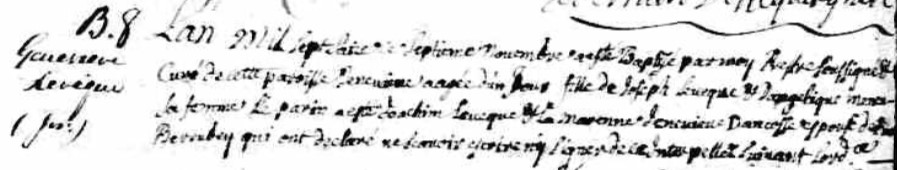 B.8
Genevieve
Leveque
L'an Mil sept septieme novembre a esté Baptisé par moy P. soussigné
Curé de cette paroisse Genevieve aagée d'un jour fille de Joseph Leveque & d'angelique
sa femme Le parin a esté Joachim Leveque & La Marenne Genevieve Dancosse epouse de
qui ont declaré ne scavoir escrire ny signer de ce interpellez suivant Lord.ce